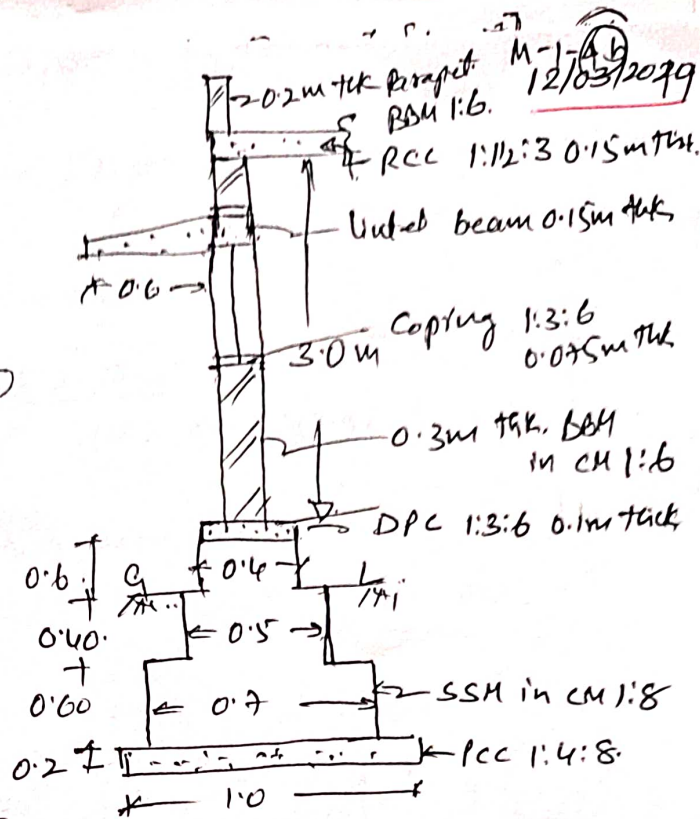 M-1-4b
12/03/2079
0.2m thk Parapet
BBM 1:6.
RCC 1:1½:3 0.15m thk.
Lintel beam 0.15m thk
0.6
Coping 1:3:6
0.075m thk
3.0m
0.3m thk. BBM
in CM 1:6
DPC 1:3:6 0.1m thick
0.6
G
0.4
L
0.40.
0.5
0.60
0.7
SSM in CM 1:8
0.2
PCC 1:4:8.
1.0